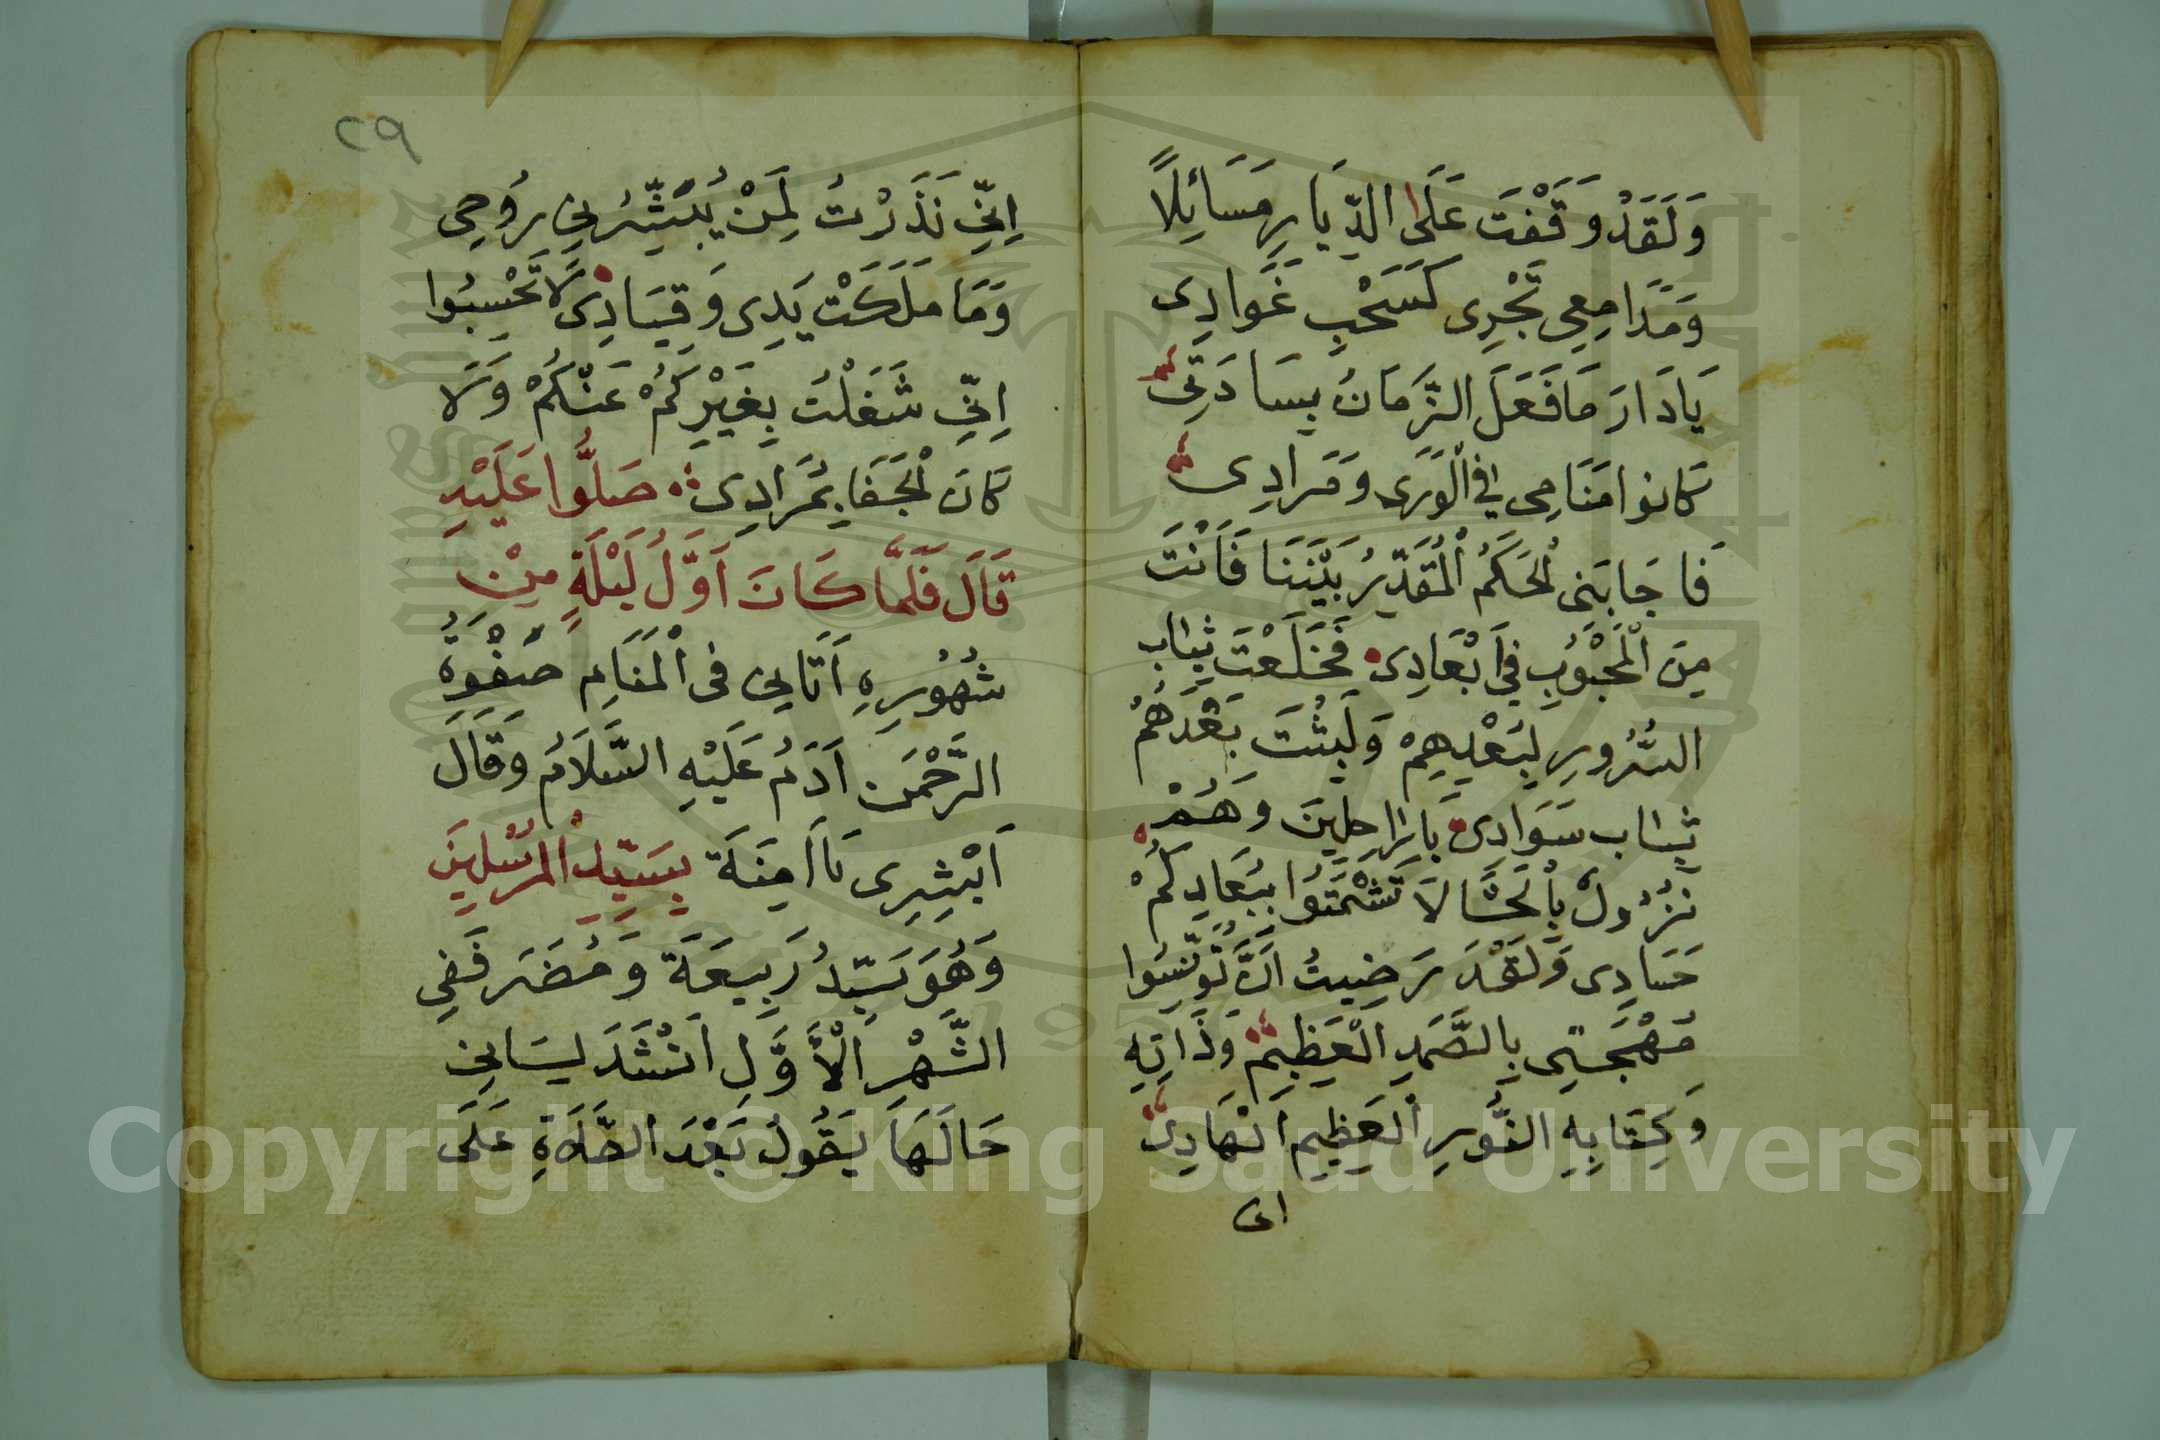 وَلَقَدْ وَقَفْتَ عَلَى الدِّيَارِ مَسَائِلًا
وَمَدَامِعِي تَجْرِى كَسَحْبِ غَوَادِى
يَادَارَ مَافَعَلَ الزَّمَانُ بِسَادَتِى
كانوا مَنَامِى فِي الْوَرَى وَمَرادِى
فَاجَابَنِى الحَكَمُ الْمُقَدِّرُ بَيْنَنَا فَاَنْتَ
مِنَ الْمَحْبُوبِ فِي اَبْعَادِى فَخَلَعْتَ ثِيَابِ
السُّرُورِ لِبَعْدِهِمْ وَلَبِثْتَ بَعْدَهُمْ
ثِيَاب سَوَادِى يَاراحِلِينَ وَهُمْ
نُزُولٌ بِالْحَشَا لَا تَشْمِتُوا بِبُعَادِكُمْ
حَسَادِى وَلَقَدْ رَضِيتُ اَنْ تُونِسُوا
مُهْجَتِى بِالصَّمَدِ الْعَظِيمِ وَذَاتِهِ
وَكِتَابِهِ النُّورِ الْعَظِيمِ الْهَادِى
انى
٢٩
اِنِّي نَذَرْتُ لِمَنْ يُبَشِّرُنِي رُوحِى
وَمَا مَلَكَتْ يَدِى وَقِيَادِى لَا تَحْسِبُوا
اِنِّي شَغَلْتُ بِغَيْرِكُمْ عَنْكُمْ وَلَا
كَانَ الْجَفَا بِمُرَادِى صَلُّوا عَلَيْهِ
قَالَ فَلَمَّا كَانَ اَوَّلُ لَيْلَةٍ مِنْ
شُهُورِهِ اَتَانِي فى الْمَنَامِ صَفْوَةُ
الرَّحْمٰن اَدَمُ عَلَيْهِ السَّلَامُ وَقَالَ
اَبْشِرِى يَا اَمِنَة بِسَيِّدِ الْمُرْسَلِينَ
وَهُوَ سَيِّدُ رَبِيعَةَ وَمُضَرَ فَفِي
الشَّهْرِ الْأَوَّلِ اَنْشَدَ لِسَانِ
حَالَهَا يَقُولُ بَعْدَ الصَّلَاةِ عَلَى
Copyright © King Saud University